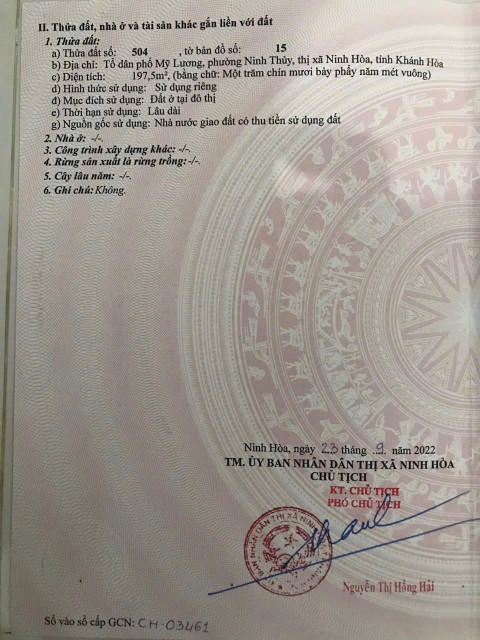 II. Thửa đất, nhà ở và tài sản khác gắn liền với đất
1. Thửa đất:
a) Thửa đất số: 504 , tờ bản đồ số: 15
b) Địa chỉ: Tổ dân phố Mỹ Lương, phường Ninh Thủy, thị xã Ninh Hòa, tỉnh Khánh Hòa
c) Diện tích: 197,5m², (bằng chữ: Một trăm chín mươi bảy phẩy năm mét vuông)
d) Hình thức sử dụng: Sử dụng riêng
đ) Mục đích sử dụng: Đất ở tại đô thị
e) Thời hạn sử dụng: Lâu dài
g) Nguồn gốc sử dụng: Nhà nước giao đất có thu tiền sử dụng đất
2. Nhà ở: -/-.
3. Công trình xây dựng khác: -/-.
4. Rừng sản xuất là rừng trồng: -/-.
5. Cây lâu năm: -/-.
6. Ghi chú: Không.
Ninh Hòa, ngày 23 tháng 9 năm 2022
TM. ỦY BAN NHÂN DÂN THỊ XÃ NINH HÒA
CHỦ TỊCH
KT. CHỦ TỊCH
PHÓ CHỦ TỊCH
Nguyễn Thị Hồng Hải
Số vào sổ cấp GCN: CH-03461